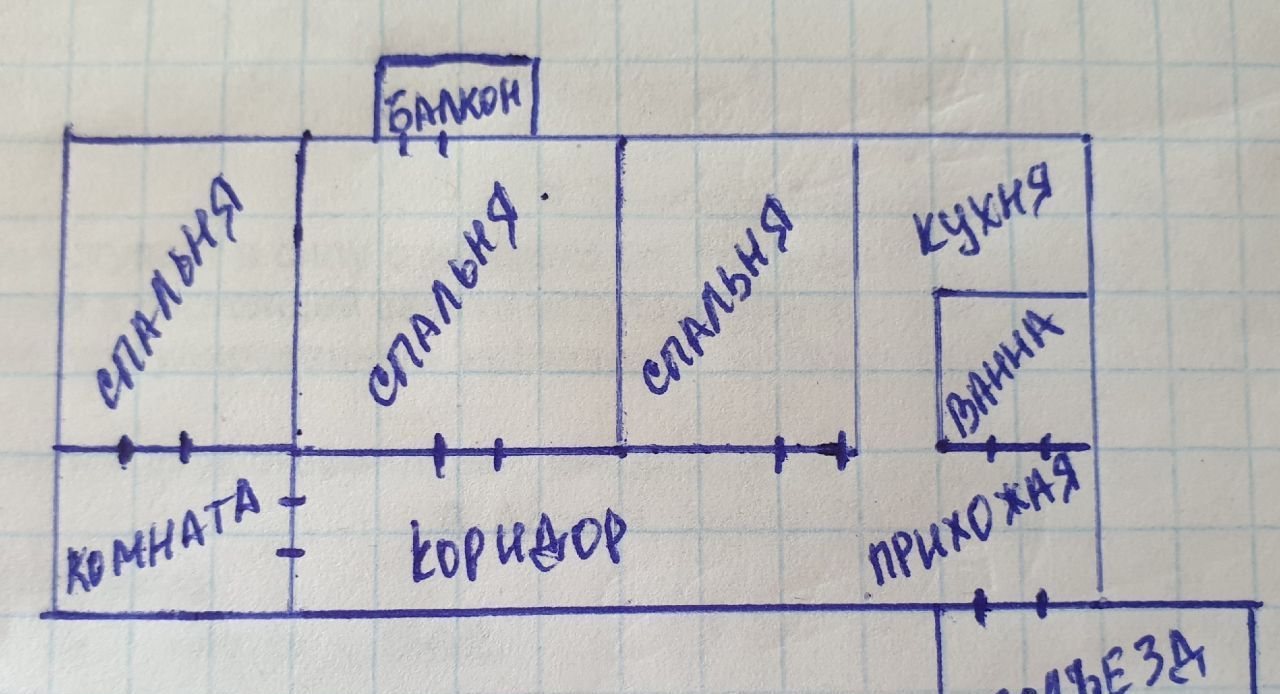 БАЛКОН
СПАЛЬНЯ
СПАЛЬНЯ
СПАЛЬНЯ
КУХНЯ
ВАННА
КОМНАТА
КОРИДОР
ПРИХОЖАЯ